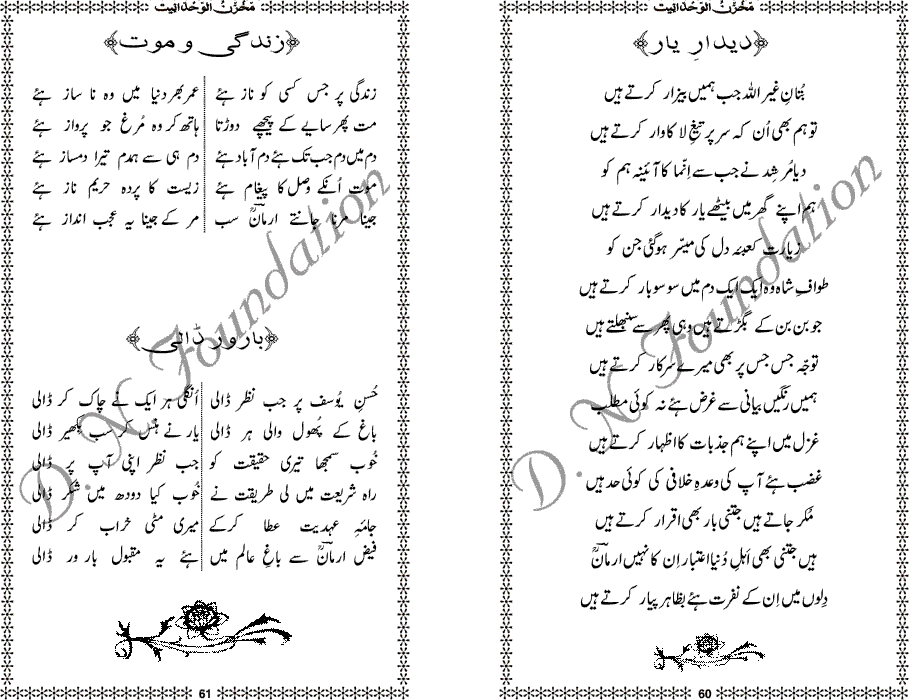 مخزن الوحدانیت
﴿دیدارِ یار﴾
بُتانِ غیر اللہ جب ہمیں بیزار کرتے ہیں
تو ہم بھی اُن کے سر پر تیغِ لا کا وار کرتے ہیں
دیا مُرشِد نے جب سے اِنّما کا آئینہ ہم کو
ہم اپنے گھر میں بیٹھے یار کا دیدار کرتے ہیں
زیارت کعبۂ دل کی میسّر ہوگئی جن کو
طوافِ شاہ وہ ایک ایک دم میں سو سو بار کرتے ہیں
جو بن بن کے بگڑتے ہیں وہی پھر سے سنبھلتے ہیں
توجّہ جس جس پر بھی میرے سرکار کرتے ہیں
ہمیں رنگیں بیانی سے غرض ہئے نہ کوئی مطلب
غزل میں اپنے ہم جذبات کا اظہار کرتے ہیں
غضب ہئے آپ کی وعدہ خلافی کی کوئی حد ہیں
مُکر جاتے ہیں جتنی بار بھی اقرار کرتے ہیں
ہیں جتنی بھی اہلِ دُنیا اعتبار اِن کا نہیں ارمانؔ
دِلوں میں اِن کے نفرت ہئے بظاہر پیار کرتے ہیں
60
مخزن الوحدانیت
﴿زندگی و موت﴾
زندگی پر جس کسی کو ناز ہئے عمر بھر دنیا میں وہ نا ساز ہئے
مت پھر سایے کے پیچھے دوڑتا ہاتھ کر وہ مُرغ جو پرواز ہئے
دم میں دم جب تک ہئے دم آباد ہئے دم ہی سے ہمدم تیرا دمساز ہئے
موت اُنکے وصل کا پیغام ہئے زیست کا پردہ حریم ناز ہئے
جینا مرنا جانتے ارمانؔ سب مر کے جینا یہ عجب انداز ہئے
﴿بارور ڈالی﴾
حُسنِ یُوسف پر جب نظر ڈالی اُنگلی ہر ایک نے چاک کر ڈالی
باغ کے پھول والی ہر ڈالی یار نے ہنس کر سب بکھیر ڈالی
خُوب سمجھا تیری حقیقت کو جب نظر اپنی آپ پر ڈالی
راہ شریعت میں لی طریقت نے خُوب کیا دودھ میں شکر ڈالی
جامۂ عہدیت عطا کرکے میری مٹی خراب کر ڈالی
فیض ارمانؔ سے باغِ عالم میں ہئے یہ مقبول بار ور ڈالی
61
D. N Foundation
D. N Foundation